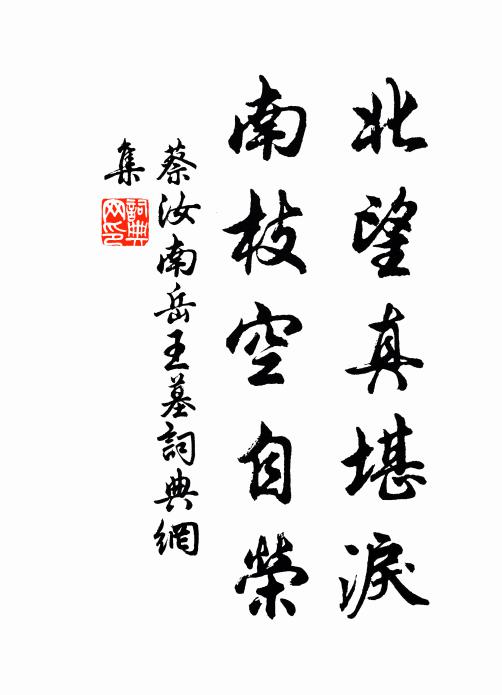 北望真堪淚
南枝空自榮
蔡汝南岳王墓詞典網
集
詞典
网印